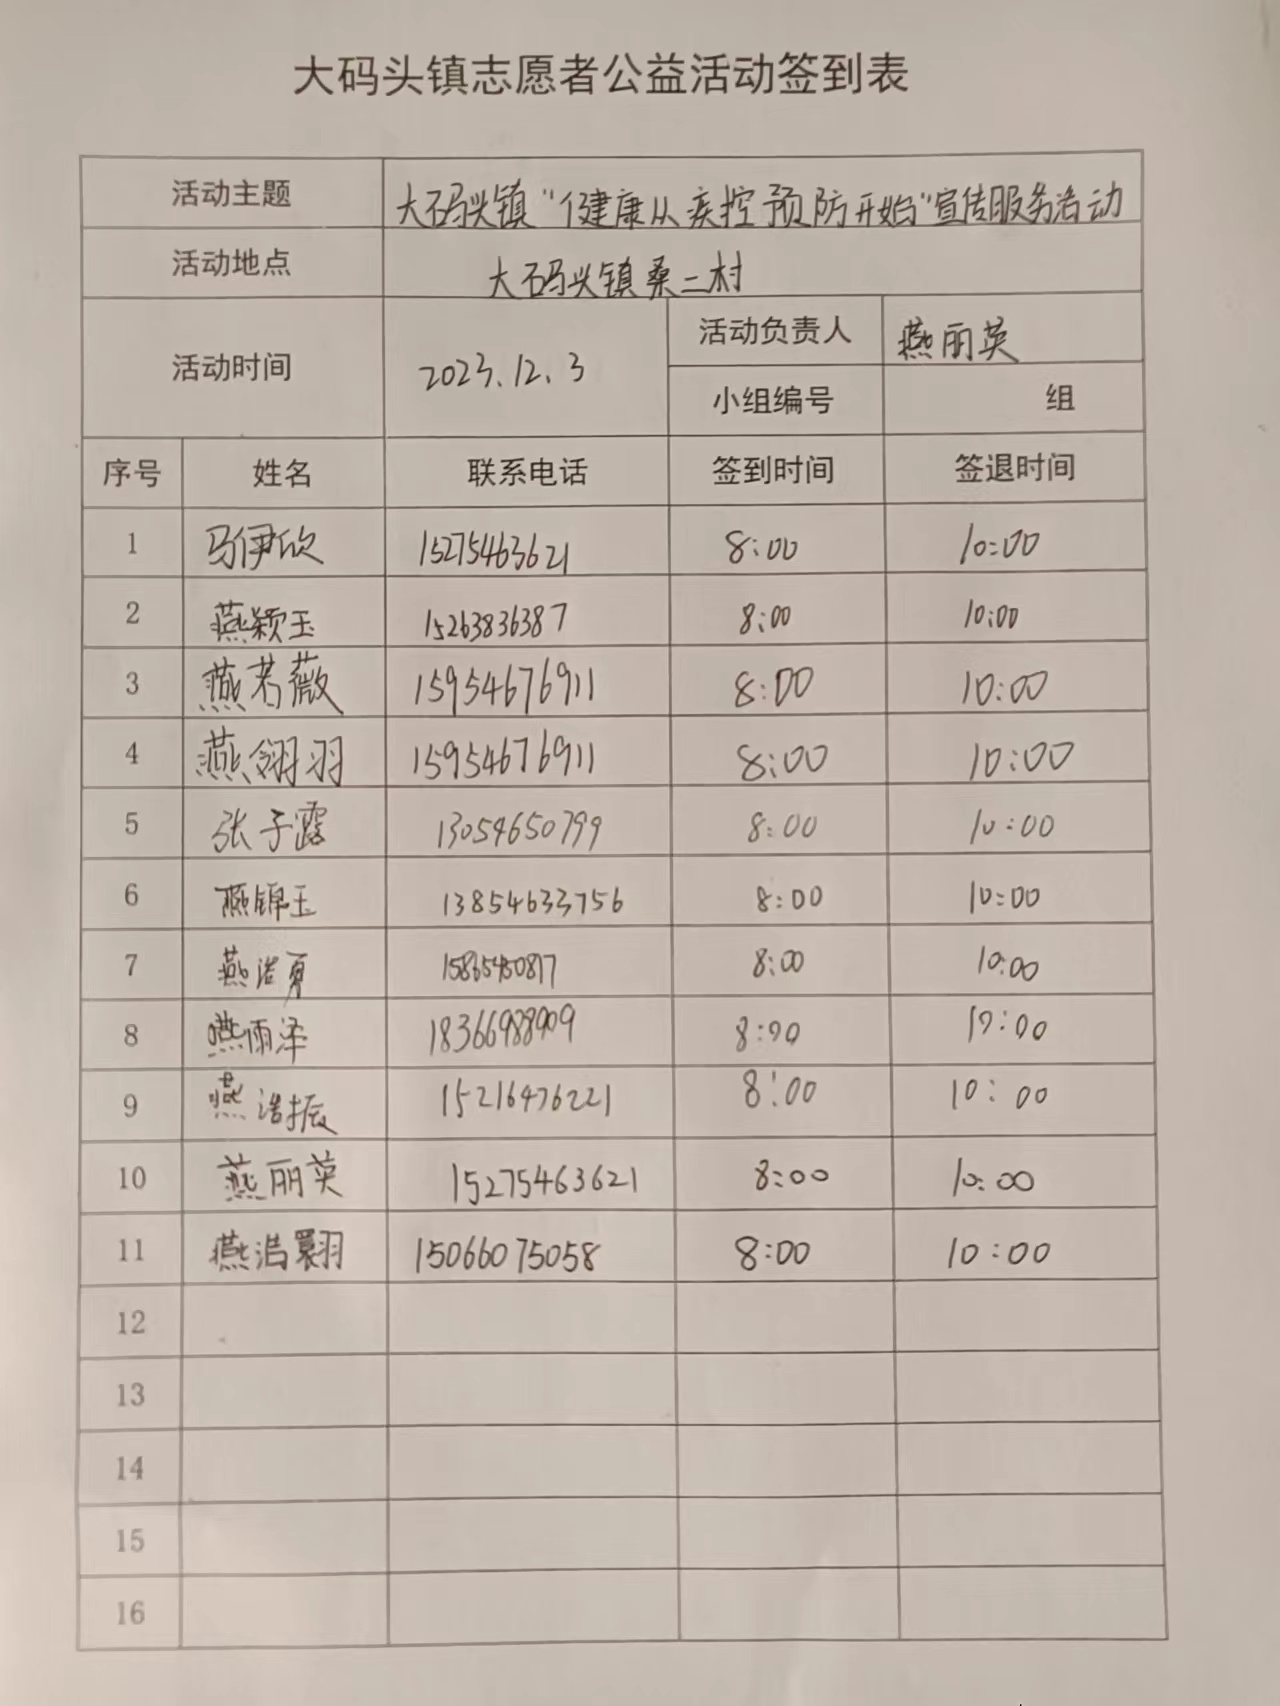 大码头镇志愿者公益活动签到表
活动主题 大码头镇“健康从疾控预防开始”宣传服务活动
活动地点 大码头镇桑二村
活动时间 2023.12.3 活动负责人 燕丽英
小组编号 组
序号 姓名 联系电话 签到时间 签退时间
1 马伊欣 15275463621 8:00 10:00
2 燕颖玉 15263836387 8:00 10:00
3 燕若薇 15954676911 8:00 10:00
4 燕翎羽 15954676911 8:00 10:00
5 张子露 13054650799 8:00 10:00
6 燕锦玉 13854633756 8:00 10:00
7 燕浩夏 8:00 10:00
8 燕雨泽 18366988909 8:00 10:00
9 燕浩振 15216476221 8:00 10:00
10 燕丽英 15275463621 8:00 10:00
11 燕浩翾 15066075058 8:00 10:00
12
13
14
15
16